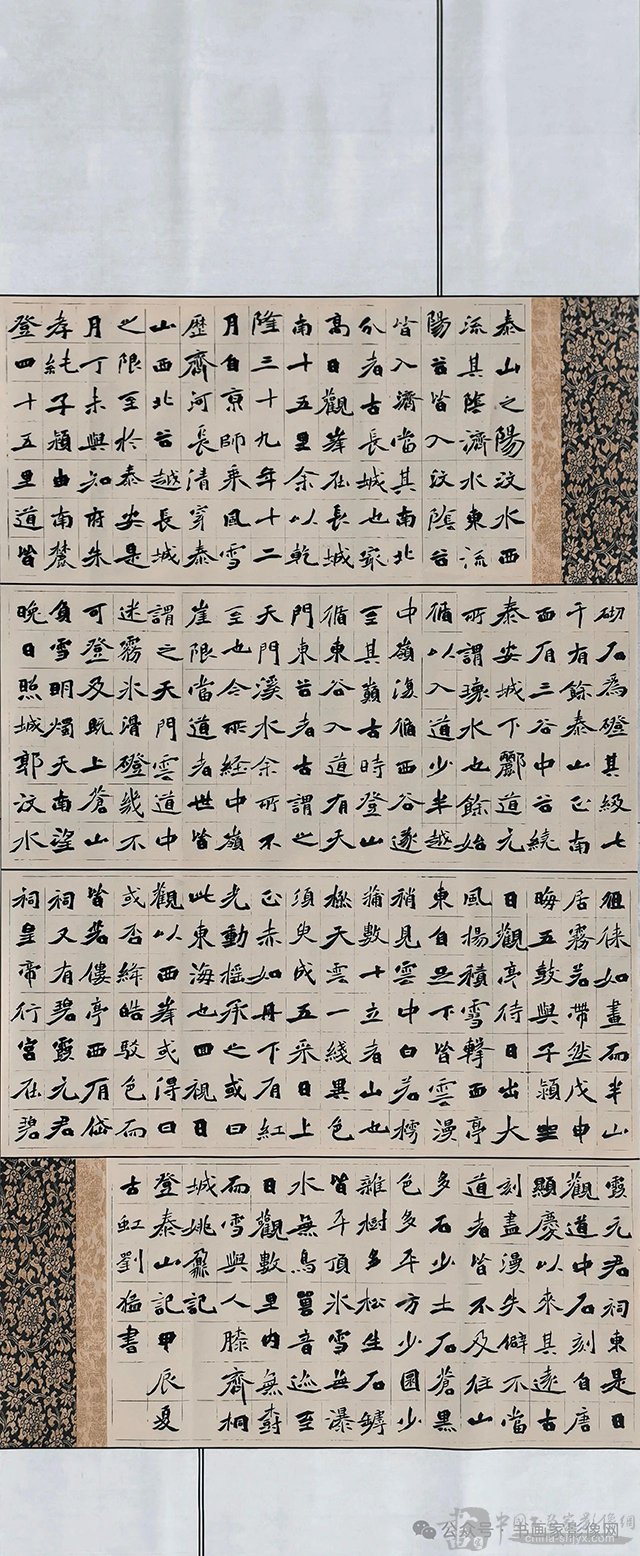 泰山之陽汶水西
流其陰濟水東流
陽谷皆入汶陰谷
皆入濟當其南北
分者古長城也冣
高日觀峯在長城
南十五里余以乾
隆三十九年十二
月自京師乘風雪
歷齊河長清穿泰
山西北谷越長城
之限至於泰安是
月丁未與知府朱
孝純子潁由南麓
登四十五里道皆
砌石爲磴其級七
千有餘泰山正南
面有三谷中谷繞
泰安城下酈道元
所謂環水也餘始
循以入道少半越
中嶺復循西谷遂
至其巔古時登山
循東谷入道有天
門東谷者古謂之
天門溪水余所不
至也今所經中嶺
崖限當道者世皆
謂之天門雲道中
迷霧冰滑磴幾不
可登及既上蒼山
負雪明燭天南望
晚日照城郭汶水
徂徠如畫而半山
居霧若帶然戊申
晦五鼓與子潁坐
日觀亭待日出大
風揚積雪擊面亭
東自足下皆雲漫
稍見雲中白若樗
蒱數十立者山也
極天雲一綫異色
須臾成五采日上
正赤如丹下有紅
光動搖承之或曰
此東海也四視日
觀以西峯或得日
或否絳皓駁色而
皆若僂亭西有岱
祠又有碧霞元君
祠皇帝行宮在碧
霞元君祠東是日
觀道中石刻自唐
顯慶以來其遠古
刻盡漫失僻不當
道者皆不及往山
多石少土石蒼黑
色多平方少圓少
雜樹多松生石罅
皆平頂冰雪無瀑
水無鳥獸音迹至
日觀數里内無樹
而雪與人膝齊桐
城姚鼐記
登泰山記甲辰夏
古虹劉猛書
公众号·书画家影像网